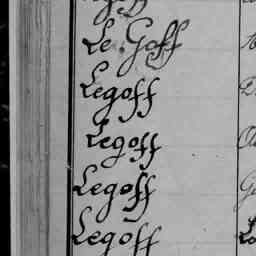 Le Goff
Legoff
Legoff
Legoff
Legoff